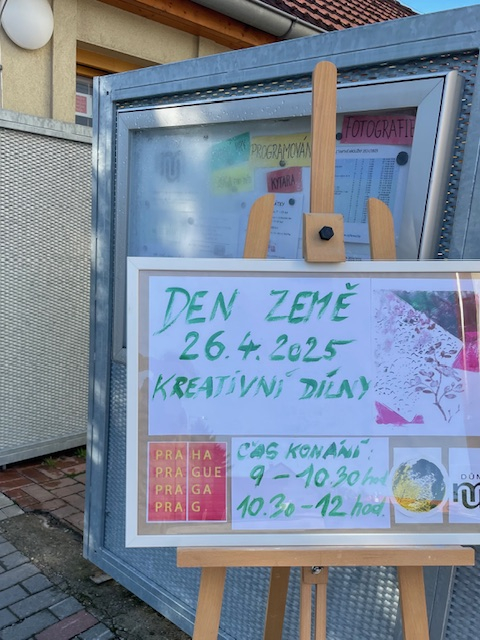 PROGRAMOVÁN
FOTOGRAFIE
KYTARA
DEN ZEMĚ
26.4.2025
KREATIVNÍ DÍLNY
PRA HA
PRA GUE
PRA GA
PRA G
ČAS KONÁNÍ:
9 – 10.30 hod
10.30 – 12 hod.
DŮM